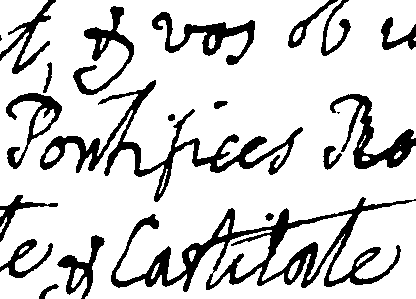 t, & vos ob
Pontifices Ro
te & Castitate